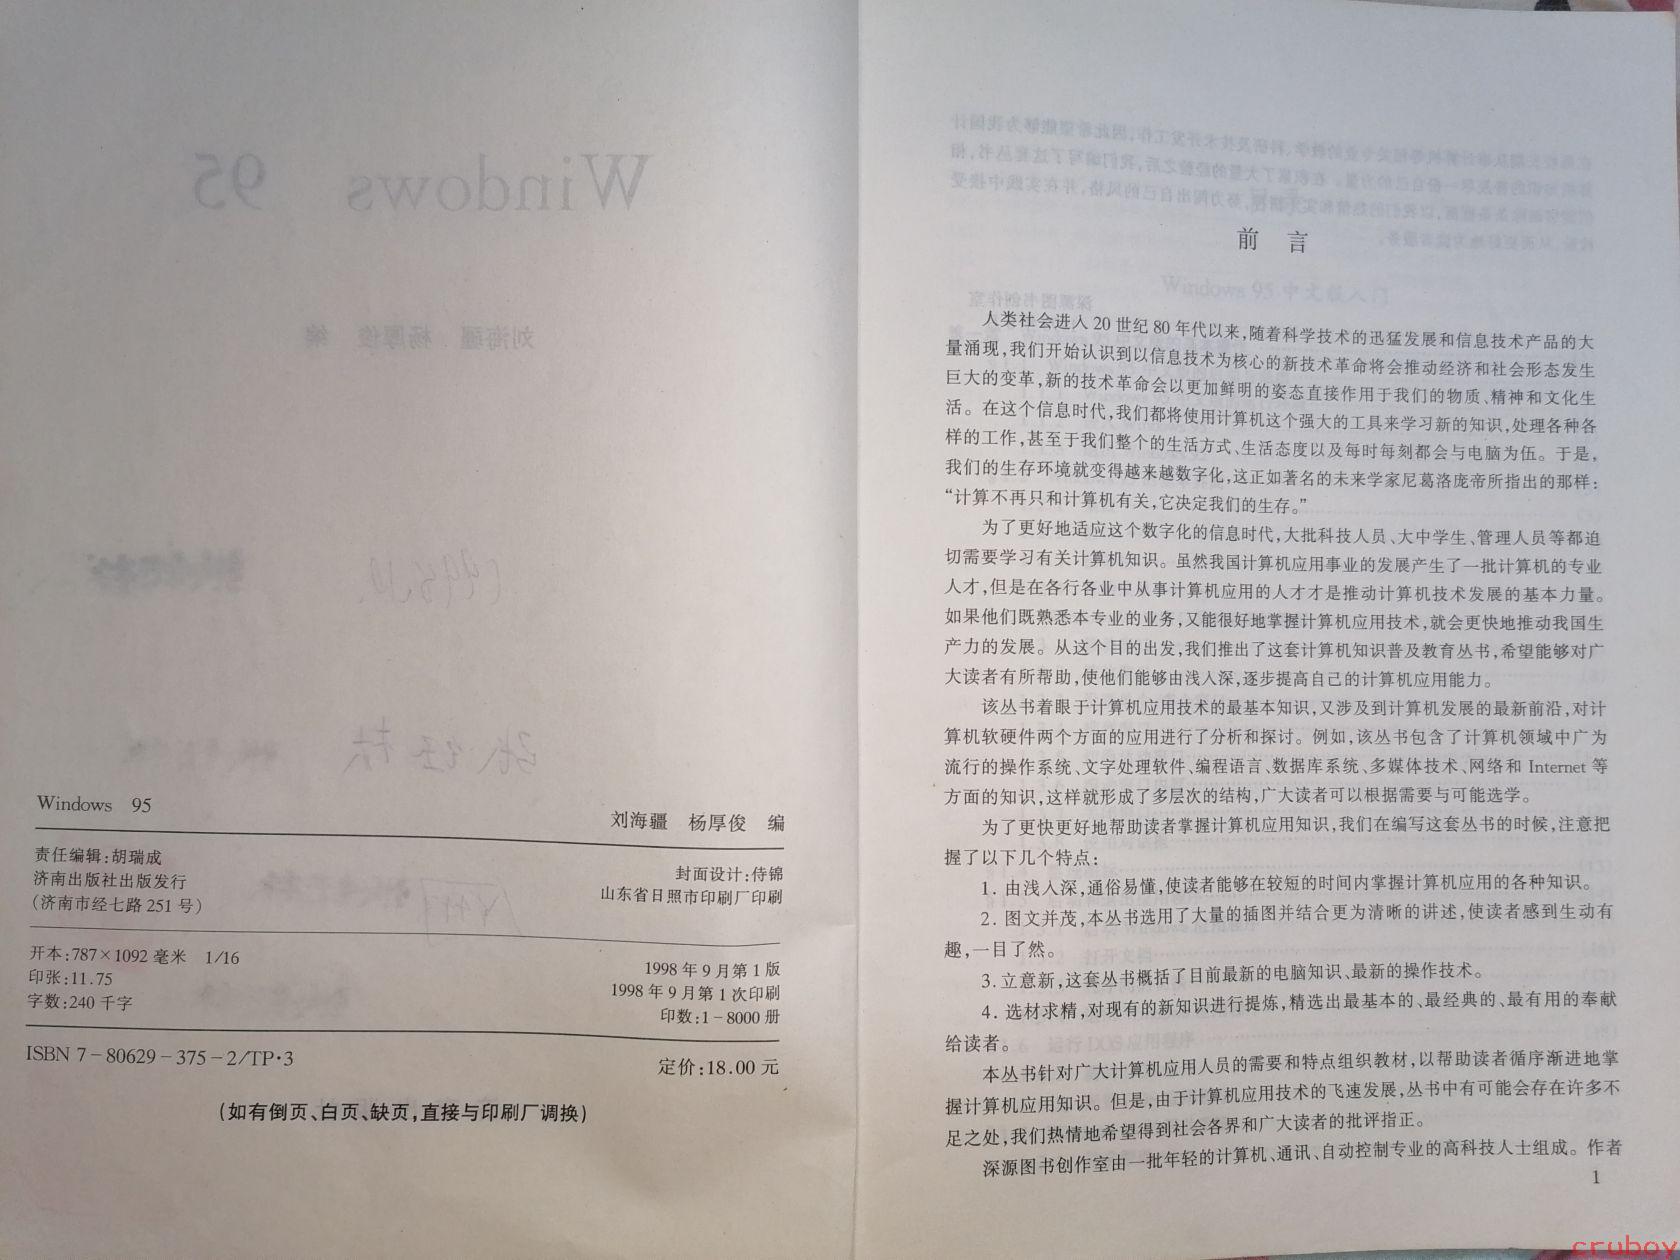 Windows 95
刘海疆 杨厚俊 编
责任编辑:胡瑞成
封面设计:侍锦
济南出版社出版发行
山东省日照市印刷厂印刷
(济南市经七路251号)
开本:787×1092毫米 1/16
1998年9月第1版
印张:11.75
1998年9月第1次印刷
字数:240千字
印数:1-8000册
ISBN 7-80629-375-2/TP·3
定价:18.00元
(如有倒页、白页、缺页,直接与印刷厂调换)
前 言
人类社会进入20世纪80年代以来,随着科学技术的迅猛发展和信息技术产品的大
量涌现,我们开始认识到以信息技术为核心的新技术革命将会推动经济和社会形态发生
巨大的变革,新的技术革命会以更加鲜明的姿态直接作用于我们的物质、精神和文化生
活。在这个信息时代,我们都将使用计算机这个强大的工具来学习新的知识,处理各种各
样的工作,甚至于我们整个的生活方式、生活态度以及每时每刻都会与电脑为伍。于是,
我们的生存环境就变得越来越数字化,这正如著名的未来学家尼葛洛庞帝所指出的那样:
“计算不再只和计算机有关,它决定我们的生存。”
为了更好地适应这个数字化的信息时代,大批科技人员、大中学生、管理人员等都迫
切需要学习有关计算机知识。虽然我国计算机应用事业的发展产生了一批计算机的专业
人才,但是在各行各业中从事计算机应用的人才才是推动计算机技术发展的基本力量。
如果他们既熟悉本专业的业务,又能很好地掌握计算机应用技术,就会更快地推动我国生
产力的发展。从这个目的出发,我们推出了这套计算机知识普及教育丛书,希望能够对广
大读者有所帮助,使他们能够由浅入深,逐步提高自己的计算机应用能力。
该丛书着眼于计算机应用技术的最基本知识,又涉及到计算机发展的最新前沿,对计
算机软硬件两个方面的应用进行了分析和探讨。例如,该丛书包含了计算机领域中广为
流行的操作系统、文字处理软件、编程语言、数据库系统、多媒体技术、网络和 Internet 等
方面的知识,这样就形成了多层次的结构,广大读者可以根据需要与可能选学。
为了更快更好地帮助读者掌握计算机应用知识,我们在编写这套丛书的时候,注意把
握了以下几个特点:
1. 由浅入深,通俗易懂,使读者能够在较短的时间内掌握计算机应用的各种知识。
2. 图文并茂,本丛书选用了大量的插图并结合更为清晰的讲述,使读者感到生动有
趣,一目了然。
3. 立意新,这套丛书概括了目前最新的电脑知识、最新的操作技术。
4. 选材求精,对现有的新知识进行提炼,精选出最基本的、最经典的、最有用的奉献
给读者。
本丛书针对广大计算机应用人员的需要和特点组织教材,以帮助读者循序渐进地掌
握计算机应用知识。但是,由于计算机应用技术的飞速发展,丛书中有可能会存在许多不
足之处,我们热情地希望得到社会各界和广大读者的批评指正。
深源图书创作室由一批年轻的计算机、通讯、自动控制专业的高科技人士组成。作者
1
cruboy